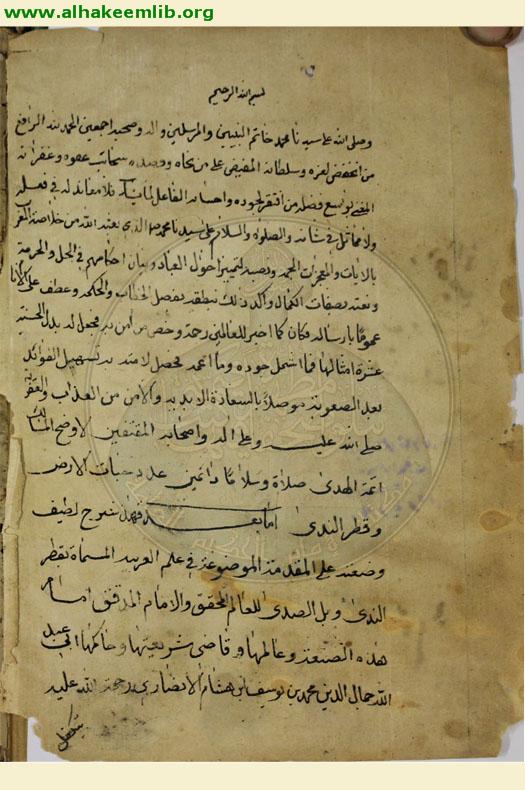 www.alhakeemlib.org
بسم الله الرحمن الرحيم
وصلى الله على سيدنا محمد خاتم النبيين والمرسلين واله وصحبه اجمعين الحمد لله الرافع
من انخفض لعزه وسلطانه المفيض على من نحاه وقصده سحائب عفوه وغفرانه
فضله من افتقر لجوده واحسانه الفاعل لما يشاء فلا معاند له في فعله
ولا مماثل في شانه والصلوة والسلام على سيدنا محمد الذي بعثه الله من خلاصة العرب
بالايات والمعجزات ونصبه لتمييز احوال العباد وبيان احكامهم في الحل والحرمة
ونعته بصفات الكمال واكد ذلك بنطقه بفصل الخطاب والحكمه وعطف على
عموما بارساله فكان كما اخبر للعالمين رحمة وخص من امن به فجعل له بدل الحسنة
عشرة امثالها فما اشمل جوده وما اعمه فحصل لامته به تسهيل الفوائد
بعد الصعوبة موصلا بالسعادة الابدية والامن من العذاب والعقوبة
صلى الله عليه وعلى اله واصحابه المقتفين لاوضح المسالك
ائمة الهدى صلاة وسلاما دائمين عدد حبات الارض
وقطر الندى اما بعد فهذا شرح لطيف
وضعته على المقدمة الموضوعة في علم العربية المسماة بقطر
الندى وبل الصدى للعالم المحقق والامام المدقق امام
هذه الصنعة وعالمها وقاضي شريعتها وحاكمها ابي عبد
الله جمال الدين محمد بن يوسف بن هشام الانصاري رحمة الله عليه